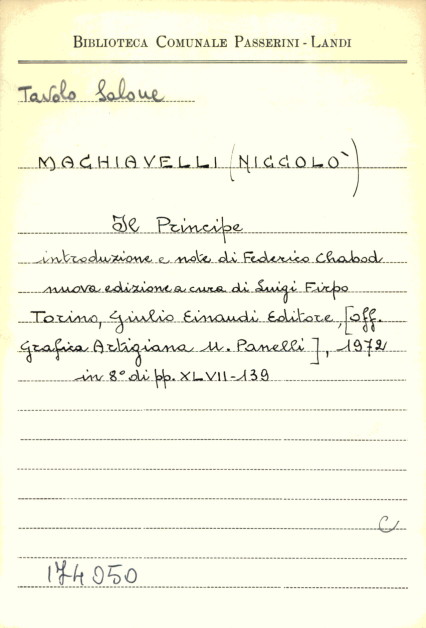 BIBLIOTECA COMUNALE PASSERINI-LANDI
Tavolo Salone
MACHIAVELLI (NICCOLÒ)
Il Principe
introduzione e note di Federico Chabod
nuova edizione a cura di Luigi Firpo
Torino, Giulio Einaudi Editore, [off.
Grafica Artigiana U. Panelli], 1972
in 8° di pp. XLVII-139
C
174050